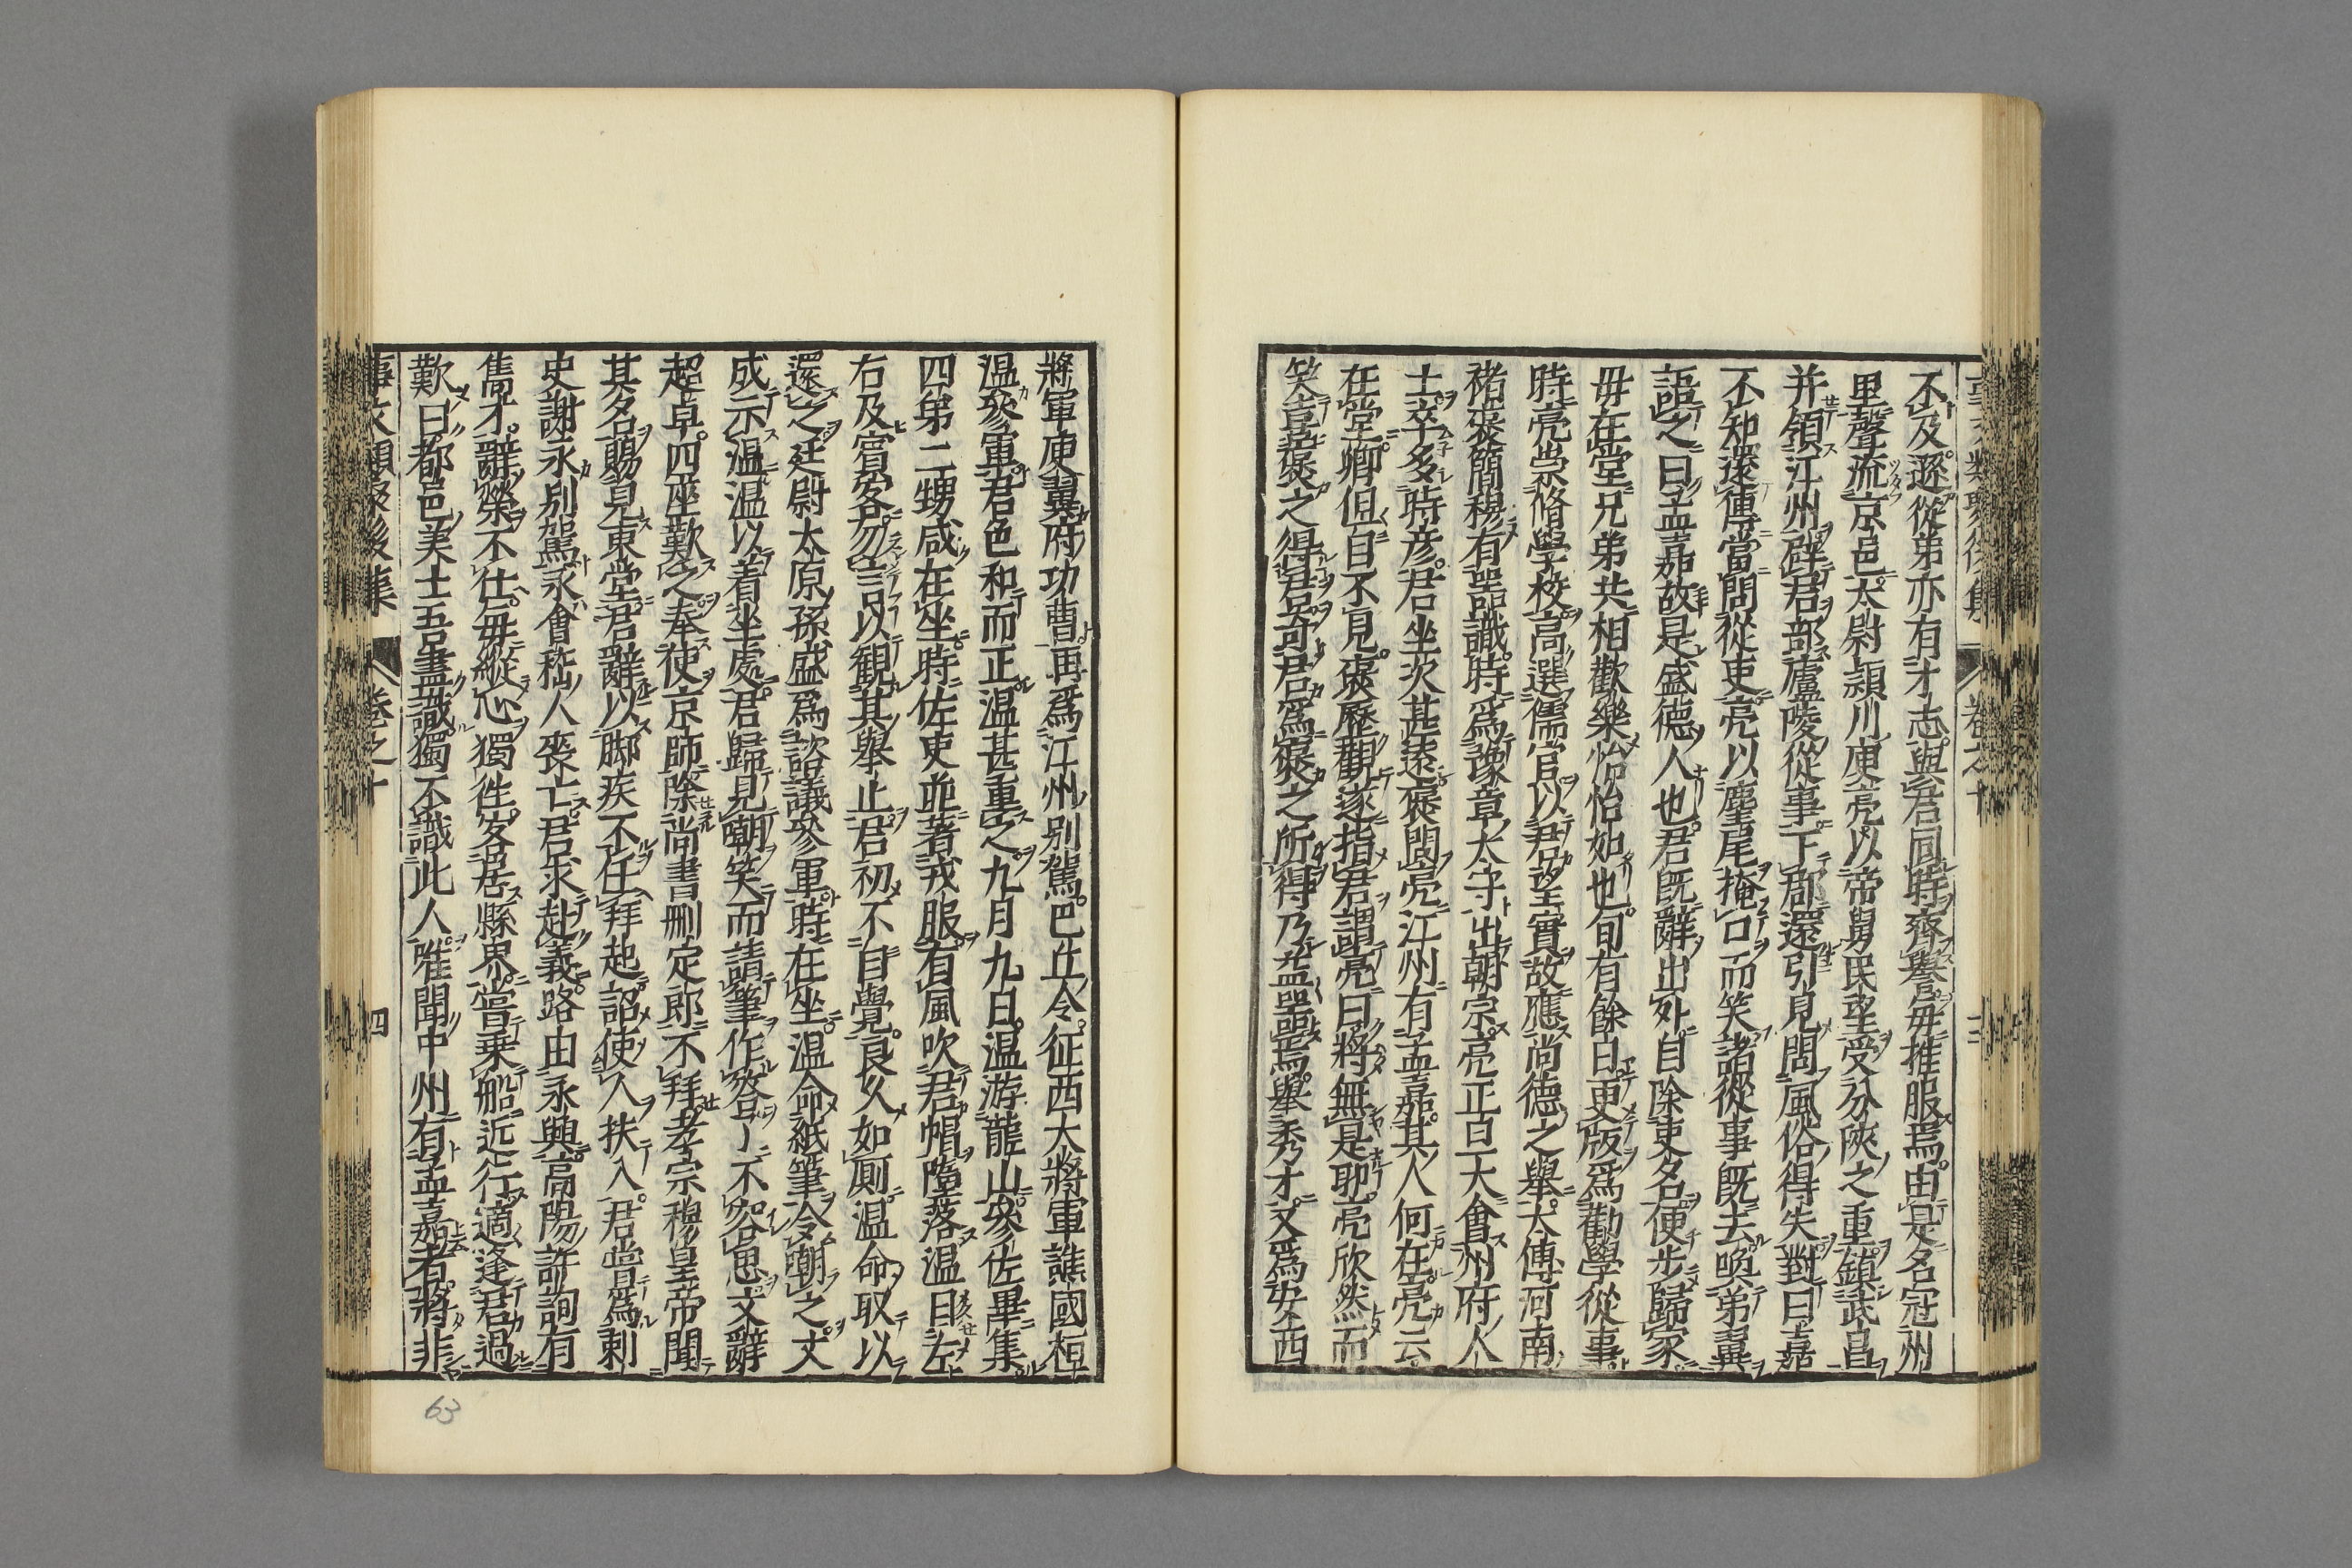 不及遜從弟亦有才志與君同時齊譽毎推服焉由是名冠州
里聲流京邑太尉頴川庾亮以帝舅民望受分陝之重鎮武昌
并領江州辟君部廬陵從事下郡還引見問風俗得失對曰嘉
不知還傳當問從吏亮以麈尾掩口而笑諸從事既去喚弟翼
語之曰孟嘉故是盛德人也君既辭出外自除吏名便步歸家
毋在堂兄弟共相歡樂怡怡如也旬有餘日更版爲勸學從事
時亮崇脩學校高選儒官以君望實故應尚德之舉太傅河南
褚裒簡穆有噐識時爲豫章太守出朝宗亮正旦大會州府人
士卒多時彦君坐次甚遠裒問亮江州有孟嘉其人何在亮云
在堂卿但自不見裒歷觀遂指君謂亮曰將無是耶亮欣然而
笑喜裒之得君奇君爲裒之所得乃益噐焉舉秀才又爲安西
將軍庾翼府功曹再爲江州别駕巴丘令征西大將軍譙國桓
温參軍君色和而正温甚重之九月九日温游龍山參佐畢集
四弟二甥咸在坐時佐吏並著戎服有風吹君帽墮落温目左
右及賓客勿言以觀其舉止君初不自覺良久如厠温命取以
還之廷尉太原孫盛爲諮議參軍時在坐温命紙筆令嘲之文
成示温温以着坐處君歸見嘲笑而請筆作答了不容思文辭
超卓四座歎之奉使京師除尚書刪定郎不拜孝宗穆皇帝聞
其名賜見東堂君辭以脚疾不任拜起詔使人扶入君嘗爲刺
史謝永别駕永會稽人喪亡君求赴義路由永興高陽許詢有
雋才辭榮不仕毎縱心獨徃客居縣界嘗乗船近行適逢君過
歎曰都邑美士吾盡識獨不識此人唯聞中州有孟嘉者將非
事文類聚後集 卷之十 四
63